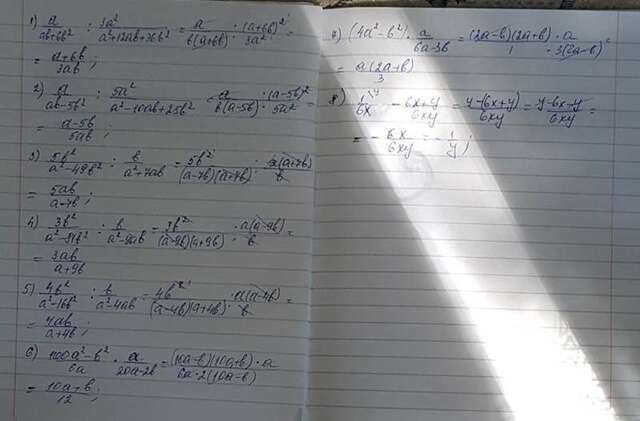 1) a/(ab+6b²) : 3a²/(a²+12ab+36b²) = a/(b(a+6b)) · (a+6b)²/3a² =
= (a+6b)/3ab ;
2) a/(ab-5b²) : 5a²/(a²-10ab+25b²) = a/(b(a-5b)) · (a-5b)²/5a² =
= (a-5b)/5ab ;
3) 5b²/(a²-49b²) : b/(a²+7ab) = 5b²/((a-7b)(a+7b)) · a(a+7b)/b
= 5ab/(a-7b) ;
4) 3b²/(a²-81b²) : b/(a²-9ab) = 3b²/((a-9b)(a+9b)) · a(a-9b)/b =
= 3ab/(a+9b)
5) 4b²/(a²-16b²) : b/(a²-4ab) = 4b²/((a-4b)(a+4b)) · a(a-4b)/b =
= 4ab/(a+4b) ;
6) (100a²-b²)/6a · a/(20a-2b) = (10a-b)(10a+b)·a/(6a·2(10a-b))
= (10a+b)/12 ;
7) (4a²-b²) · a/(6a-3b) = (2a-b)(2a+b)/1 · a/3(2a-b) =
= a(2a+b)/3
8) 1/6x - (6x+y)/6xy = (y-(6x+y))/6xy = (y-6x-y)/6xy =
= - 6x/6xy = - 1/y ;